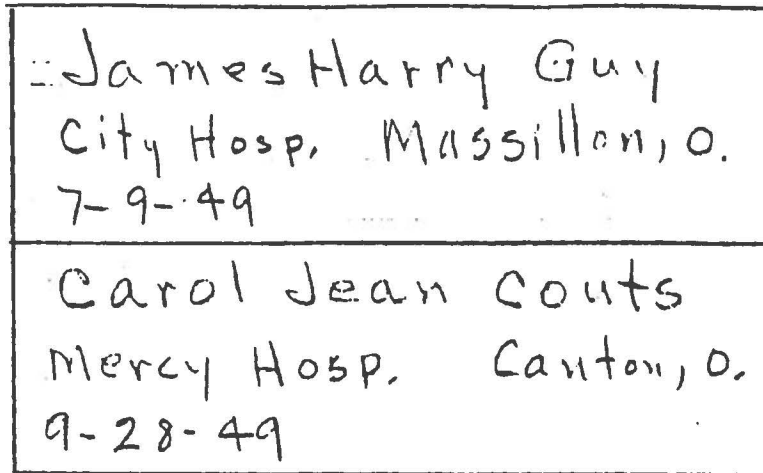 James Harry Guy
City Hosp. Massillon, O.
7-9-49
Carol Jean Couts
Mercy Hosp. Canton, O.
9-28-49